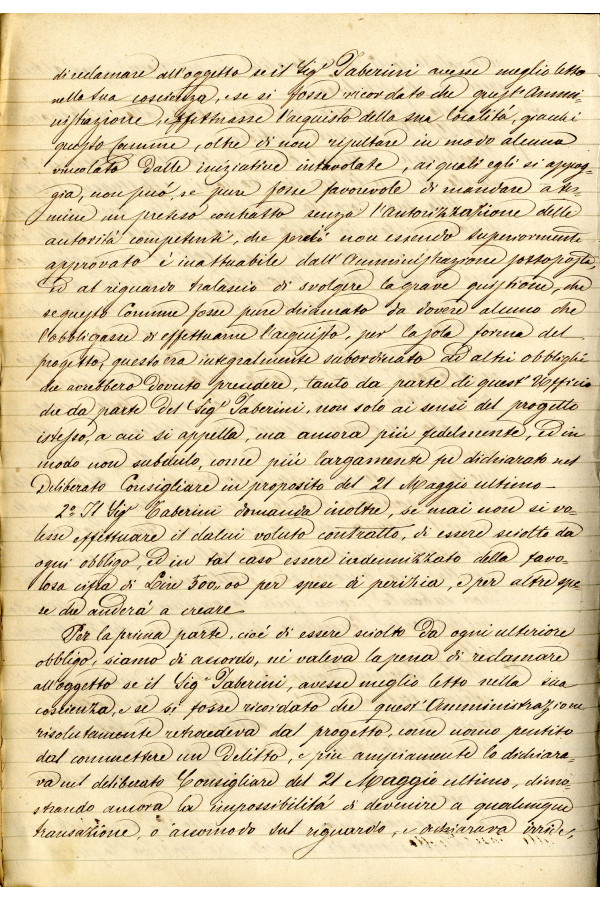 di reclamare all'oggetto se il Sig.r Taberini avesse meglio letto
nella sua coscienza, e se si fosse ricordato che quest'Ammi-
nistrazione, effettuasse l'acquisto della sua località, giacchè
questo comune, oltre di non risultare in modo alcuno
vincolato dalle iniziative intavolate, ai quali egli si appog-
gia, non può, se pure fosse favorevole di mandare a ter-
mine un preteso contratto senza l'autorizzazione delle
autorità competenti, che perciò non essendo superiormente
approvato è inattuabile dall'Amministrazione sottoposta,
ed al riguardo tralascio di svolgere la grave quistione, che
se questo Comune fosse pure chiamato da dovere alcuno che
l'obbligasse di effettuarne l'acquisto, per la sola forma del
progetto, questo era integralmente subordinato ad altri obblighi
che avrebbero dovuto prendere, tanto da parte di quest'Ufficio
che da parte del Sig.r Taberini, non solo ai sensi del progetto
istesso, a cui si appella, ma ancora più fedelmente, ed in
modo non subdulo, come più largamente fu dichiarato nel
Deliberato Consigliare in proposito del 21 Maggio ultimo-
2.o Il Sig.r Taberini domanda inoltre, se mai non si vo-
lesse effettuare il da lui voluto contratto, di essere sciolto da
ogni obbligo, ed in tal caso essere indennizzato della favo-
losa cifra di Lire 500,00 per spese di perizia, e per altre spe-
se che anderà a creare-
Per la prima parte, cioè di essere sciolto da ogni ulteriore
obbligo, siamo di accordo, nè valeva la pena di reclamare
all'oggetto se il Sig.r Taberini, avesse meglio letto nella sua
coscienza, e se si fosse ricordato che quest'Amministrazione
risolutamente retrocedeva dal progetto, come uomo pentito
dal commettere un Delitto, e più ampiamente lo dichiara-
va nel deliberato Consigliare del 21 Maggio ultimo, dimo-
strando ancora la impossibilità di devenire a qualunque
transazione, o accomodo sul riguardo, e dichiarava